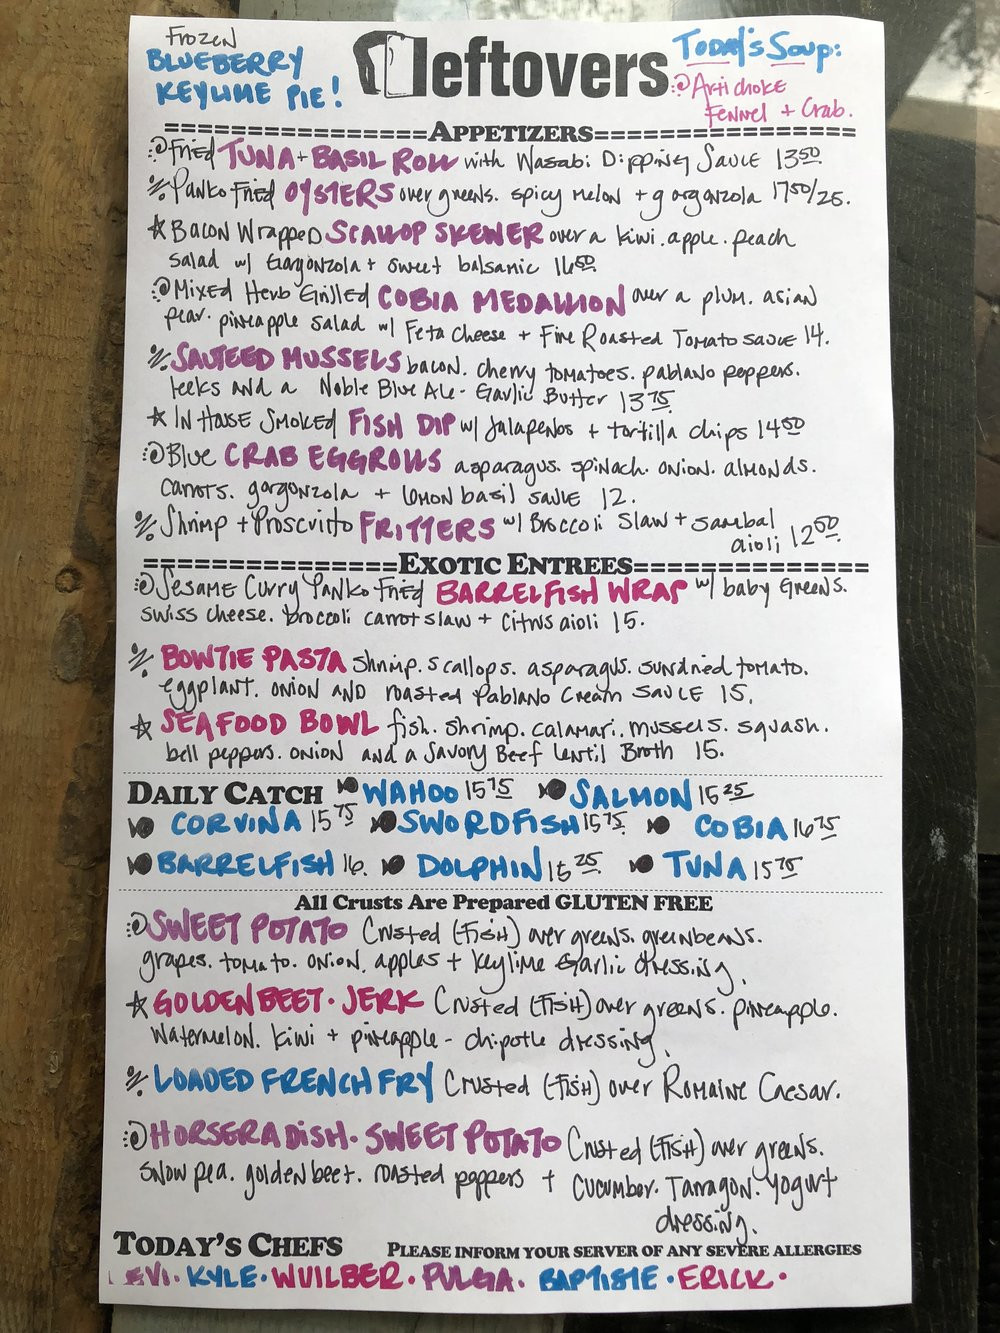 Frozen
BLUEBERRY
KEYLIME PIE!
leftovers
Today's Soup:
Artichoke
Fennel + Crab.
APPETIZERS
Fried TUNA + BASIL ROLL with Wasabi Dipping Sauce 13 50
Panko Fried OYSTERS over greens. spicy melon + gorgonzola 17 50/25.
Bacon Wrapped SCALLOP SKEWER over a kiwi. apple. peach
salad w/ Gorgonzola + sweet balsamic 16 50
Mixed Herb Grilled COBIA MEDALLION over a plum. asian
pear. pineapple salad w/ Feta Cheese + Fire Roasted Tomato sauce 14.
SAUTEED MUSSELS bacon. cherry tomatoes. pablano peppers.
leeks and a Noble Blue Ale - Garlic Butter 13 75
IN House Smoked FISH DIP w/ Jalapenos + tortilla chips 14 50
Blue CRAB EGGROLLS asparagus. spinach. onion. almonds.
carrots. gorgonzola + lemon basil sauce 12.
Shrimp + Proscuitto FRITTERS w/ Broccoli Slaw + Sambal
aioli 12 50
EXOTIC ENTREES
Sesame Curry Panko Fried BARRELFISH WRAP w/ baby Greens.
swiss cheese. broccoli carrot slaw + citrus aioli 15.
BOWTIE PASTA shrimp. scallops. asparagus. sundried tomato.
eggplant. onion AND roasted Pablano Cream sauce 15.
SEAFOOD BOWL fish. shrimp. calamari. mussels. squash.
bell peppers. onion and a savory Beef lentil Broth 15.
DAILY CATCH WAHOO 15 75 SALMON 15 25
CORVINA 15 75 SWORDFISH 15 75 COBIA 16 75
BARRELFISH 16. DOLPHIN 15 25 TUNA 15 75
All Crusts Are Prepared GLUTEN FREE
SWEET POTATO Crusted (FISH) over greens. greenbeans.
grapes. tomato. onion. apples + keylime Garlic dressing.
GOLDEN BEET · JERK Crusted (FISH) over greens. pineapple.
watermelon. kiwi + pineapple - chipotle dressing.
LOADED FRENCH FRY Crusted (FISH) over Romaine Caesar.
HORSERADISH · SWEET POTATO Crusted (FISH) over greens.
snow pea. golden beet. roasted peppers + cucumber. Tarragon. Yogurt
dressing.
TODAY'S CHEFS PLEASE INFORM YOUR SERVER OF ANY SEVERE ALLERGIES
LEVI · KYLE · WUILBER · PULGA · BAPTISTE · ERICK ·